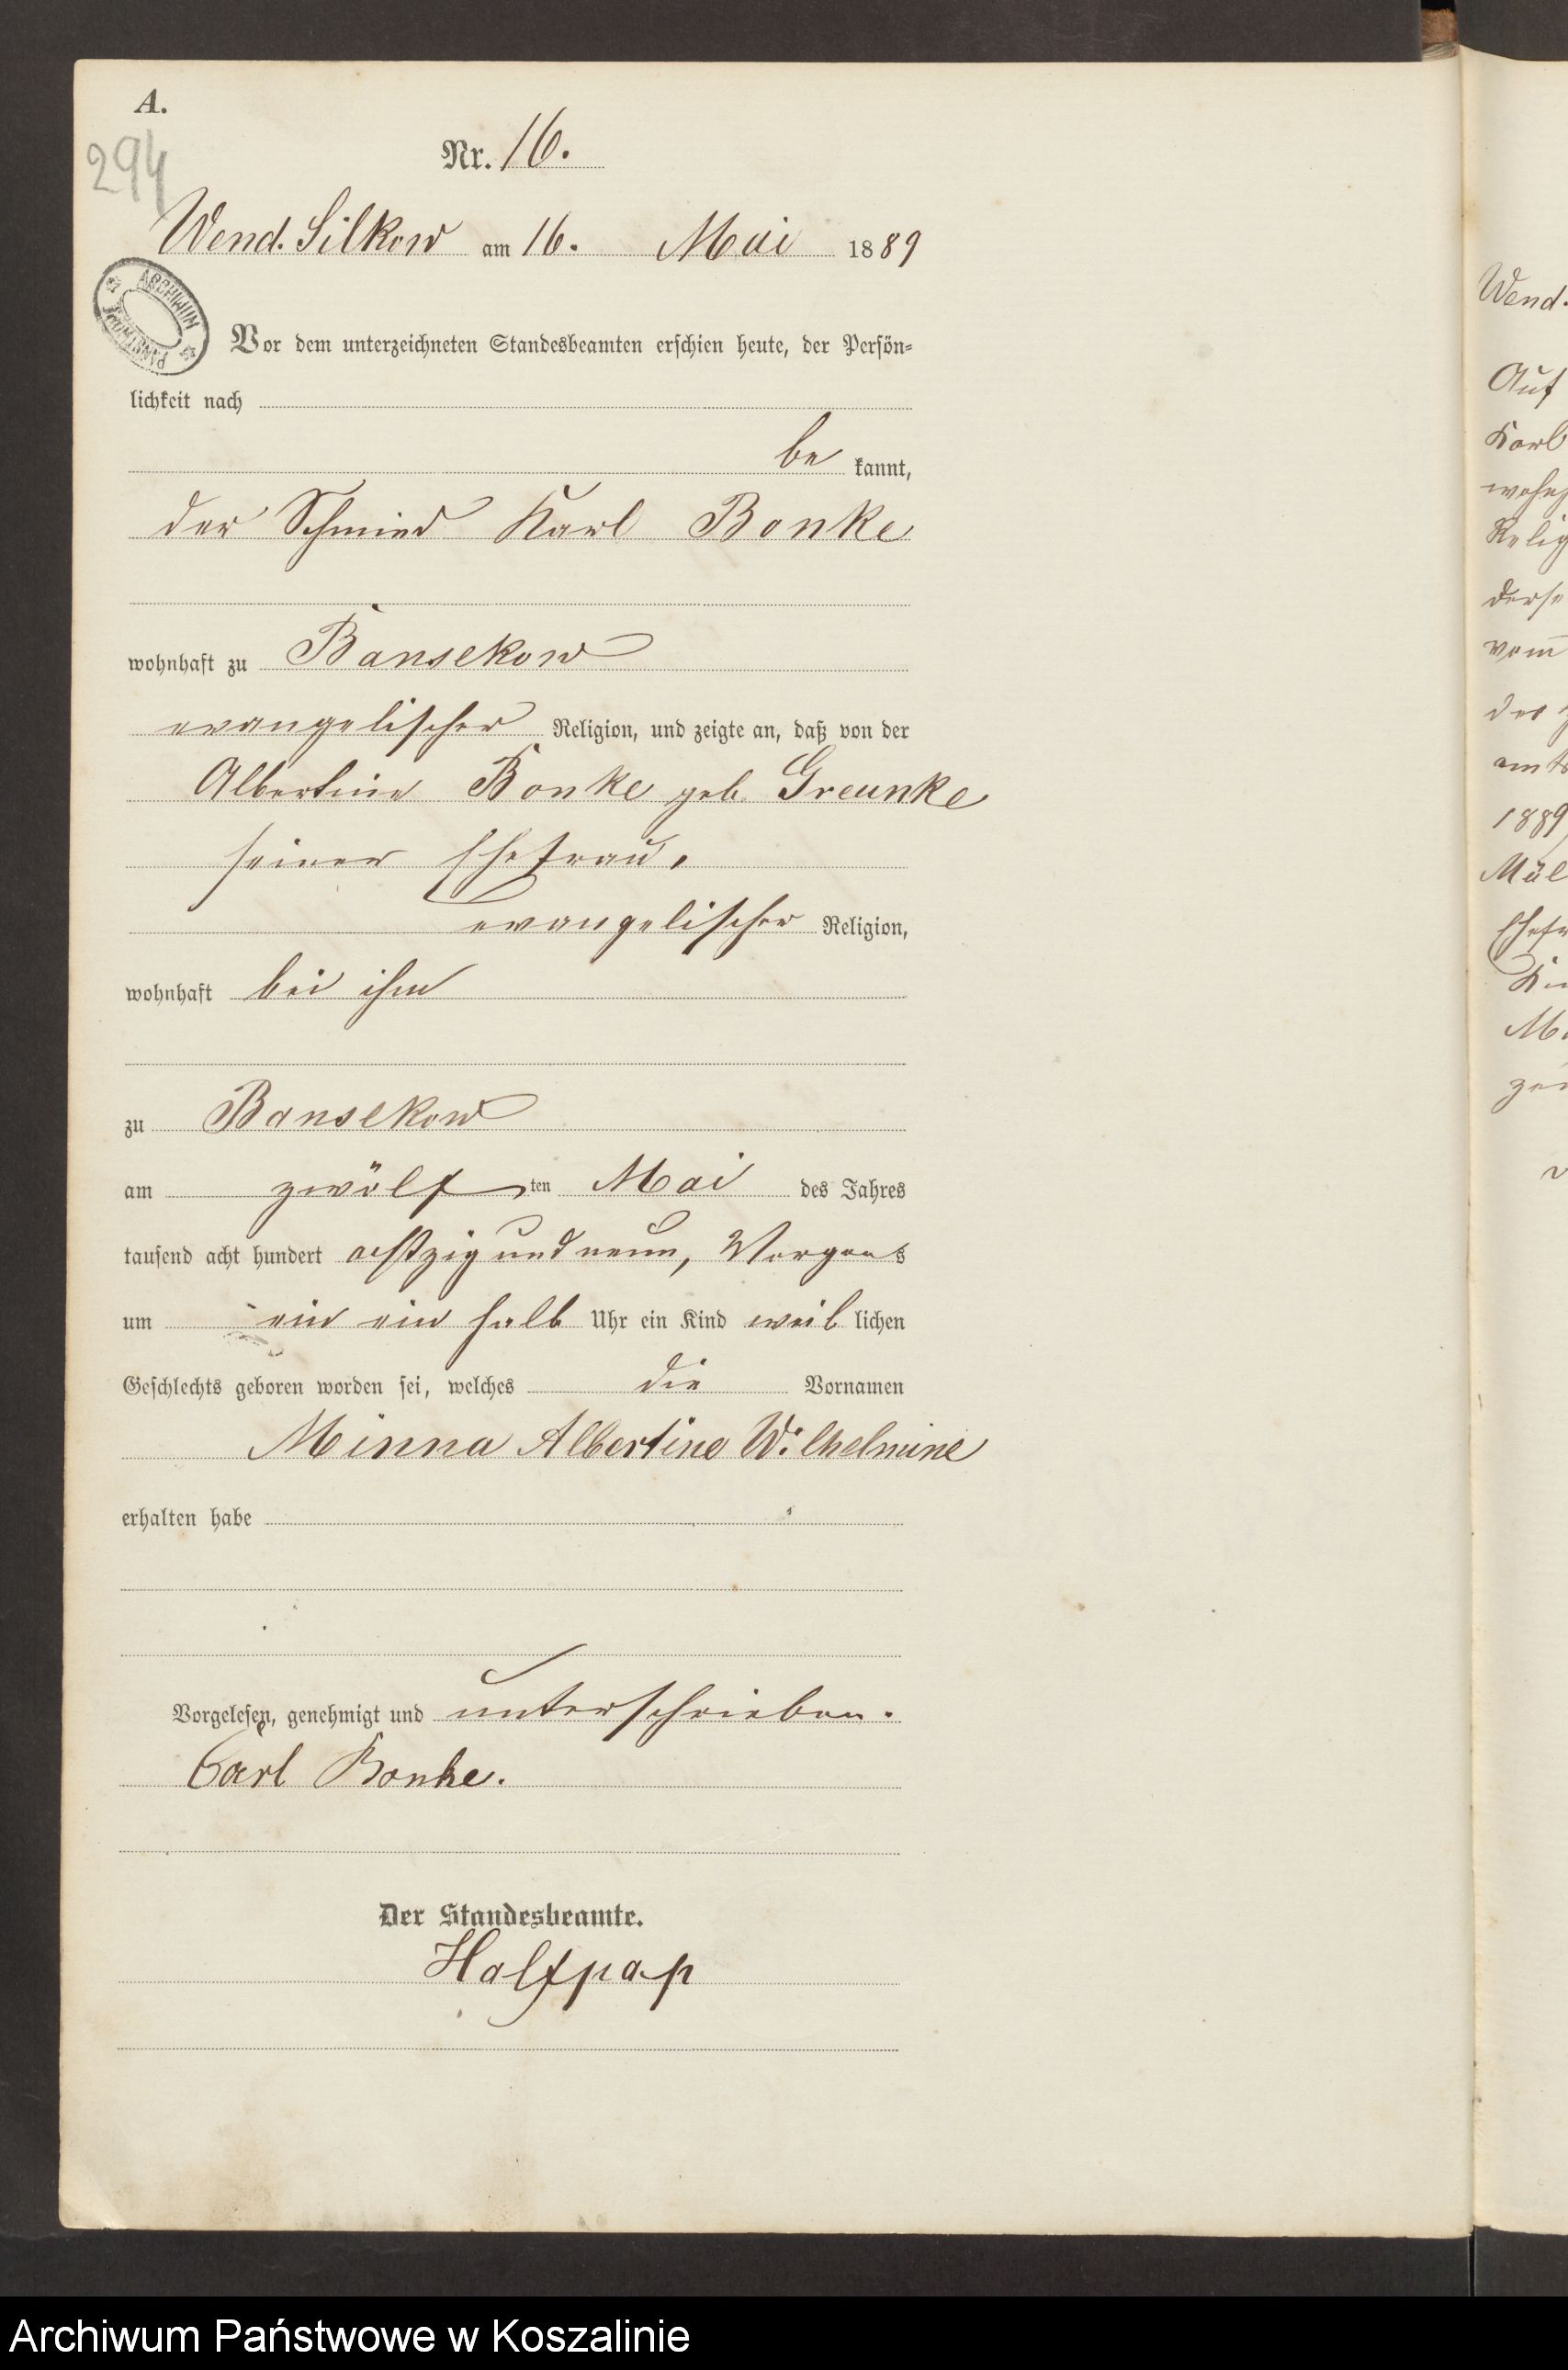 A.
294
Nr. 16.
Wend. Silkow am 16. Mai 1889
ARCHIWUM PAŃSTWOWE
Vor dem unterzeichneten Standesbeamten erschien heute, der Persön-
lichkeit nach
be kannt,
der Schmied Karl Bonke
wohnhaft zu Bansekow
evangelischer Religion, und zeigte an, daß von der
Albertine Bonke geb. Greunke
seiner Ehefrau,
evangelischer Religion,
wohnhaft bei ihm
zu Bansekow
am zwölf ten Mai des Jahres
tausend acht hundert achtzig und neun, Morgens
um ein ein halb Uhr ein Kind weib lichen
Geschlechts geboren worden sei, welches die Vornamen
Minna Albertine Wilhelmine
erhalten habe
Vorgelesen, genehmigt und unterschrieben.
Carl Bonke.
Der Standesbeamte.
Halfpap
Wend.
Auf
Karl
wohn
Relig
derse
vom
des
amts
1889
Mül
Ehefr
Archiwum Państwowe w Koszalinie